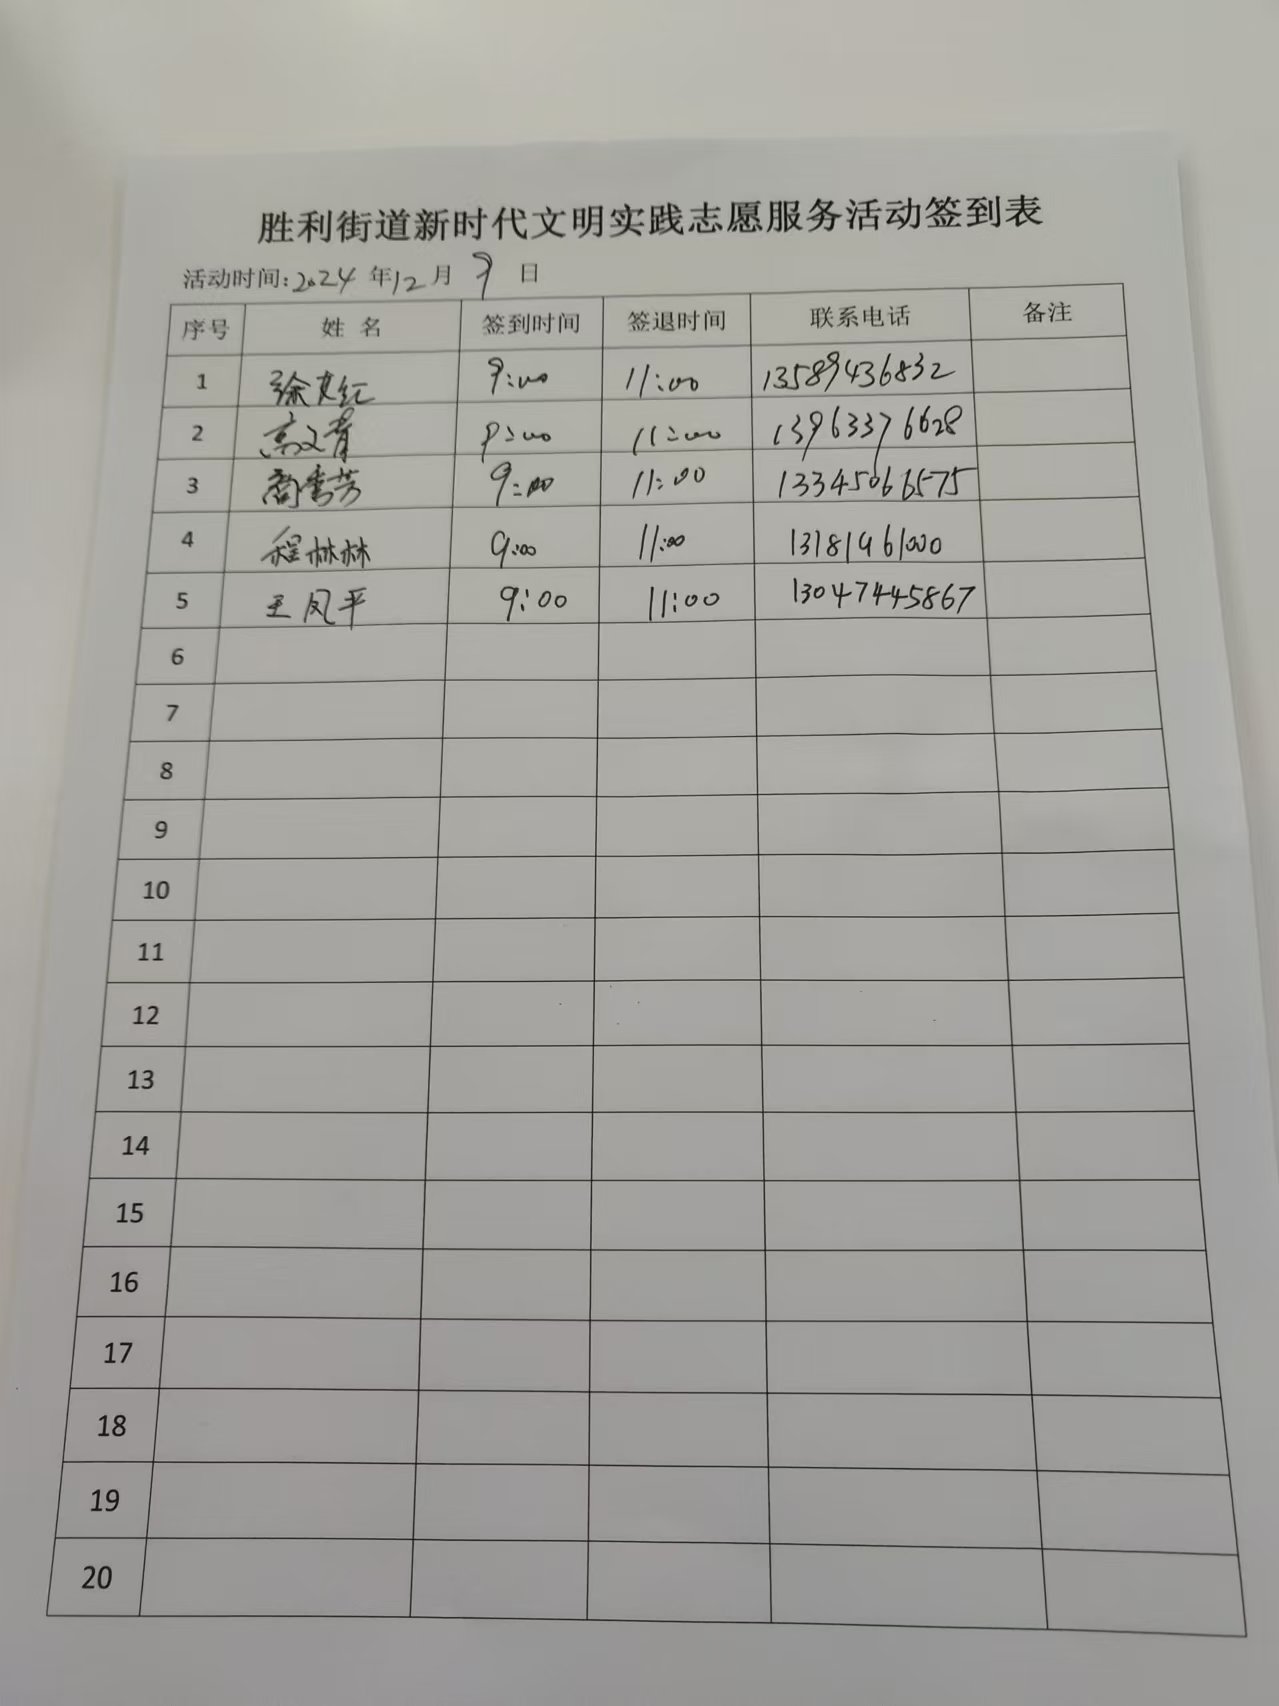 胜利街道新时代文明实践志愿服务活动签到表
活动时间:2024年12月9日
序号 姓名 签到时间 签退时间 联系电话 备注
1 徐友红 9:00 11:00 13589436832
2 高文青 9:00 11:00 13963376628
3 商秀芳 9:00 11:00 13345066575
4 程林林 9:00 11:00 13181961000
5 王凤平 9:00 11:00 13047445867
6
7
8
9
10
11
12
13
14
15
16
17
18
19
20